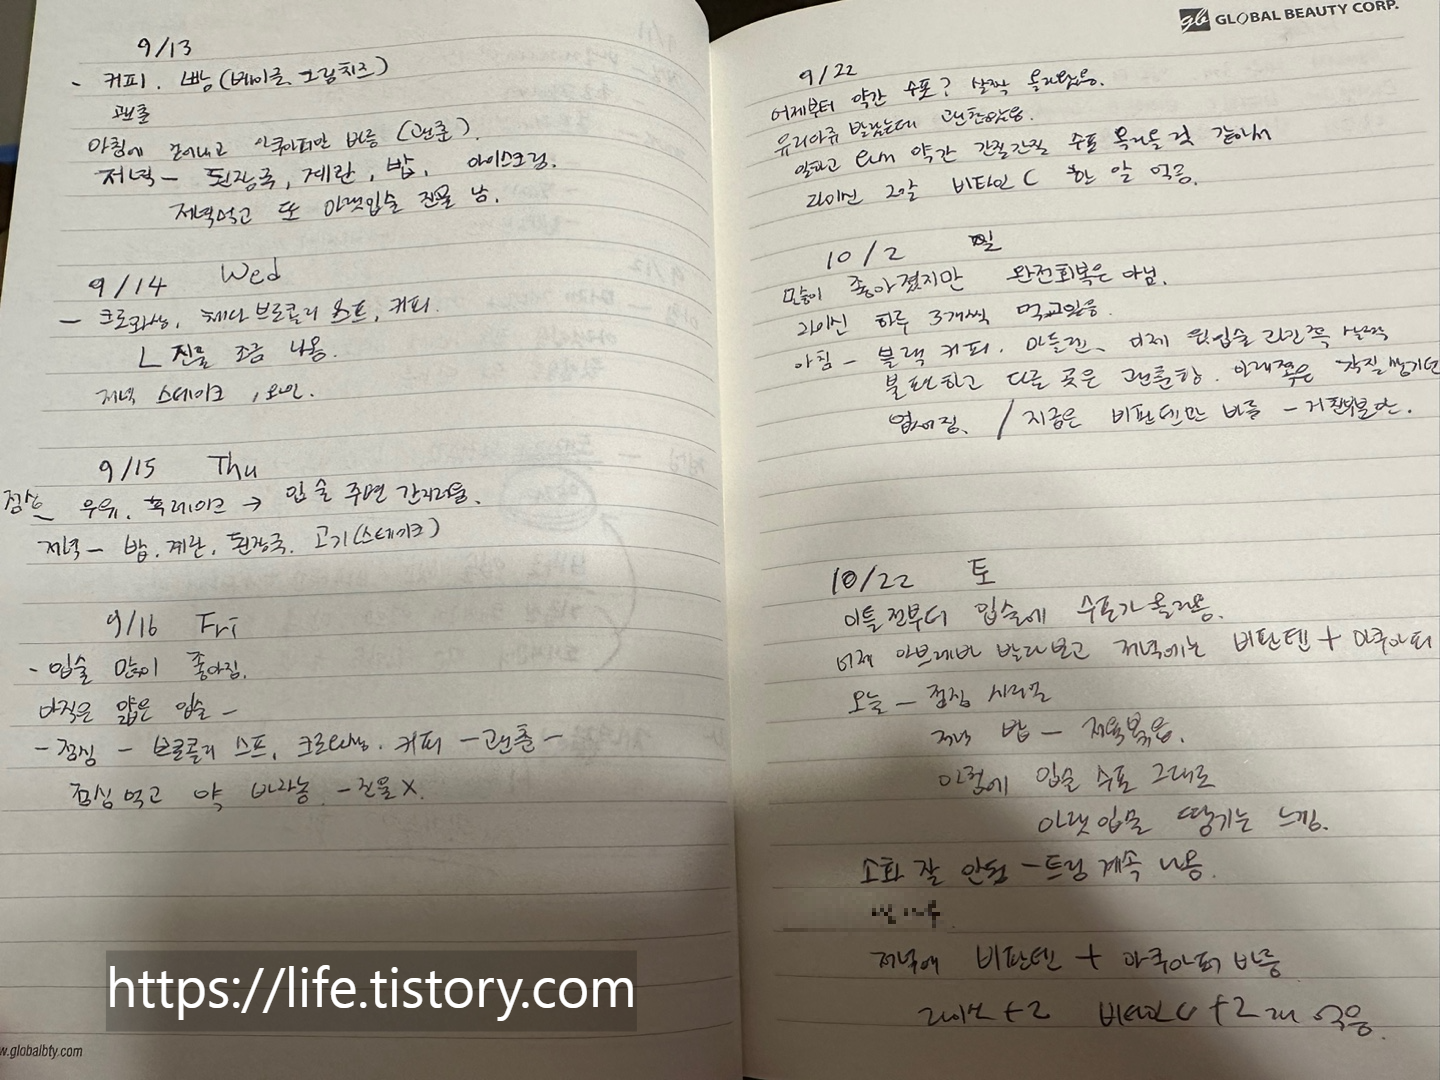 9/13
- 커피. 빵(베이글, 크림치즈)
괜춘
아침에 걷어내고 아쿠아퍼만 바름 (괜춘).
저녁 - 된장국, 계란, 밥, 아이스크림.
저녁먹고 또 아랫입술 진물 남.
9/14 Wed
- 크로와상, 체다 브로콜리 스프, 커피.
ㄴ 진물 조금 나옴.
저녁 스테이크, 와인.
9/15 Thu
점심 - 우유, 후레이크 → 입술 주변 간지러움.
저녁 - 밥, 계란, 된장국, 고기(스테이크)
9/16 Fri
- 입술 많이 좋아짐.
아직은 얇은 입술 -
- 점심 - 브로콜리 스프, 크로와상, 커피 - 괜춘 -
점심 먹고 약 바라놓 - 진물 X.
https://life.tistory.com
w.globalbty.com
gb GLOBAL BEAUTY CORP.
9/22
어제부터 약간 수포? 살짝 올라왔음.
유리아쥬 발랐는데 괜찮았음.
약간 간질간질 수포 올라올 것 같아서
라이신 2알 비타민 C 한 알 먹음.
10/2 일
많이 좋아졌지만 완전회복은 아님.
라이신 하루 3개씩 먹고있음.
아침 - 블랙 커피, 마들렌, 어제 윗입술 라인쪽 살짝
불편하고 다른 곳은 괜춘함. 아래쪽은 각질 생기던
없어짐. / 지금은 비판텐만 바름 -
10/22 토
이틀 전부터 입술에 수포가 올라옴.
어제 아브레바 발라보고 저녁에는 비판텐 + 아쿠아퍼
오늘 - 점심 시리얼
저녁 밥 - 제육볶음.
아침에 입술 수포 그대로
아랫입술 땅기는 느낌.
소화 잘 안됨 - 트림 계속 나옴.
저녁에 비판텐 + 아쿠아퍼 바름
라이신 + 2 비타민 C + 2 먹음.